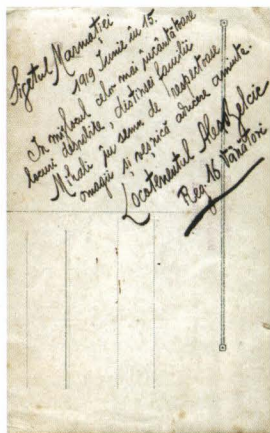 Sigetul Marmației
1919 Iunie în 15.
In mijlocul celor mai încântătoare
locuri deosebite, distinsei familii
Mihali în semn de respectoase
omagii și veșnică aducere aminte.
Locotenentul Alex
Reg. 16 Vânători